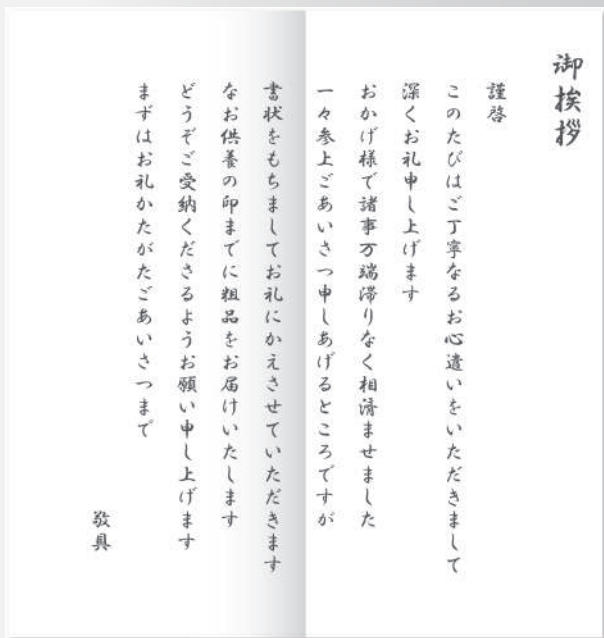 御挨拶
謹啓
このたびはご丁寧なるお心遣いをいただきまして
深くお礼申し上げます
おかげ様で諸事万端滞りなく相済ませました
一々参上ごあいさつ申しあげるところですが
書状をもちましてお礼にかえさせていただきます
なお供養の印までに粗品をお届けいたします
どうぞご受納くださるようお願い申し上げます
まずはお礼かたがたごあいさつまで
敬具